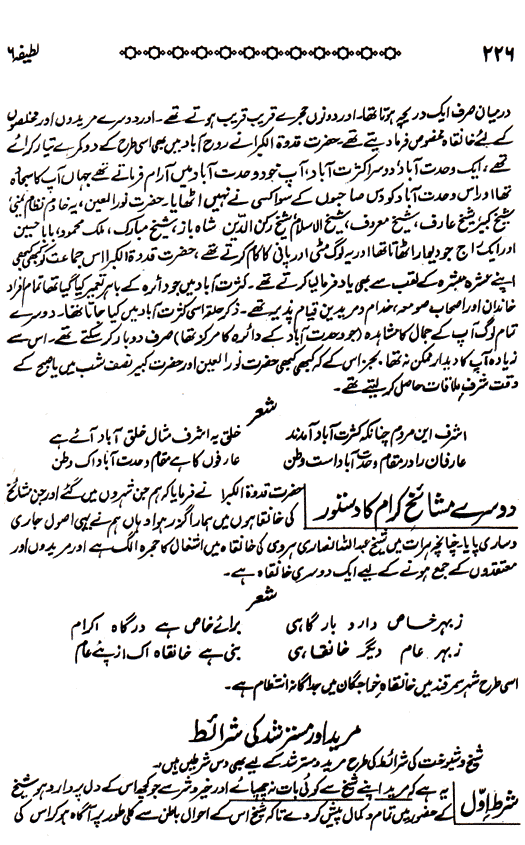 ۲۲۶ لطیفہ ۶
درمیان صرف ایک دریچہ ہوتا تھا۔ اور دونوں حجرے قریب قریب ہوتے تھے۔ اور دوسرے مریدوں اور مخلصوں
کے لئے خانقاہ مخصوص فرما دیتے تھے۔ حضرت قدوۃ الکبرا نے روح آباد میں بھی اسی طرح کے دو کمرے تیار کرائے
تھے، ایک وحدت آباد، دوسرا کثرت آباد، آپ خود وحدت آباد میں آرام فرماتے تھے جہاں آپ کا سجادہ
تھا اور اس وحدت آباد کو دس صاحبوں کے سوا کسی نے نہیں اٹھایا۔ حضرت نور العین، یہ خادم نظام یمنی،
شیخ کبیر، شیخ عارف، شیخ معروف، شیخ الاسلام، شیخ رکن الدین شاہباز، شیخ مبارک، ملک محمود، بابا حسین
اور ایک راج جو دیوار اٹھاتا تھا اور یہ لوگ مٹی اور پانی کا کام کرتے تھے، حضرت قدوۃ الکبرا اس جماعت کو کبھی کبھی
اپنے عشرہ مبشرہ کے لقب سے بھی یاد فرمایا کرتے تھے۔ کثرت آباد میں جو دائرہ کے باہر تعمیر کیا گیا تھا تمام افراد
خاندان اور اصحاب صومعہ، خدام و مریدین قیام پذیر تھے۔ ذکر حلقہ اسی کثرت آباد میں کیا جاتا تھا۔ دوسرے
تمام لوگ آپ کے جمال کا مشاہدہ (جو وحدت آباد کے دائرہ کا مرکز تھا) صرف دو بار کر سکتے تھے۔ اس سے
زیادہ آپ کا دیدار ممکن نہ تھا۔ بجز اس کے کہ کبھی کبھی حضرت نور العین اور حضرت کبیر نصف شب میں یا صبح کے
وقت شرف ملاقات حاصل کر لیتے تھے۔
شعر
اشرف این مردم چنانکہ کثرت آباد آمدند خلق یہ اشرف مثال خلق آباد آئے ہے
عارفان را در مقام وحدت آباد است وطن عارفوں کا ہے مقام وحدت آباد اک وطن
دوسرے مشائخ کرام کا دستور حضرت قدوۃ الکبرا نے فرمایا کہ ہم جن شہروں میں گئے اور جن مشائخ
کی خانقاہوں میں ہمارا گزر ہوا وہاں ہم نے یہی اصول جاری
و ساری پایا۔ چنانچہ ہرات میں شیخ عبداللہ انصاری ہروی کی خانقاہ میں اشتغال کا حجرہ الگ ہے اور مریدوں اور
معتقدوں کے جمع ہونے کے لیے ایک دوسری خانقاہ ہے۔
شعر
ز بہر خاص دارد بارگاہی برائے خاص ہے درگاہ اکرام
ز بہر عام دیگر خانقاہی بنی ہے خانقاہ اک از پئے عام
اسی طرح شہر سمرقند میں خانقاہ خواجگان میں جداگانہ انتظام ہے۔
مرید اور مسترشد کی شرائط
شیخ و شیوخت کی شرائط کی طرح مرید و مسترشد کے لیے بھی دس شرطیں ہیں۔
شرط اوّل یہ ہے کہ مرید اپنے شیخ سے کوئی بات نہ چھپائے اور خیر و شر سے جو کچھ اس کے دل پر وارد ہو شیخ
کے حضور میں تمام و کمال پیش کر دے تاکہ شیخ اس کے احوال باطن سے کلی طور پر آگاہ ہو کر اس کی